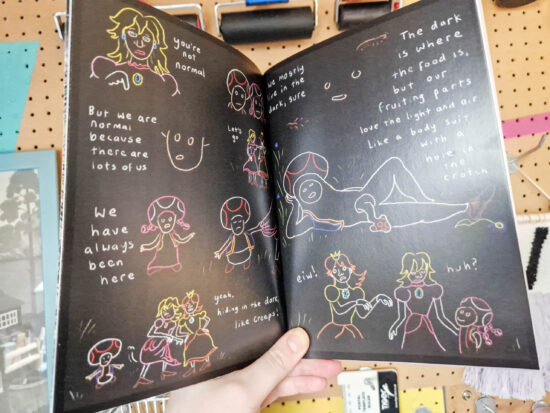 you're
not
normal
But we are
normal
because
there are
lots of us
Let's
go
We
have
always
been
here
yeah,
hiding in the dark,
like creeps!
We mostly
live in the
dark, sure
The dark
is where
the food is,
but our
fruiting parts
love the light and air
Like a body suit
with a
hole in
the
crotch
eiw!
huh?